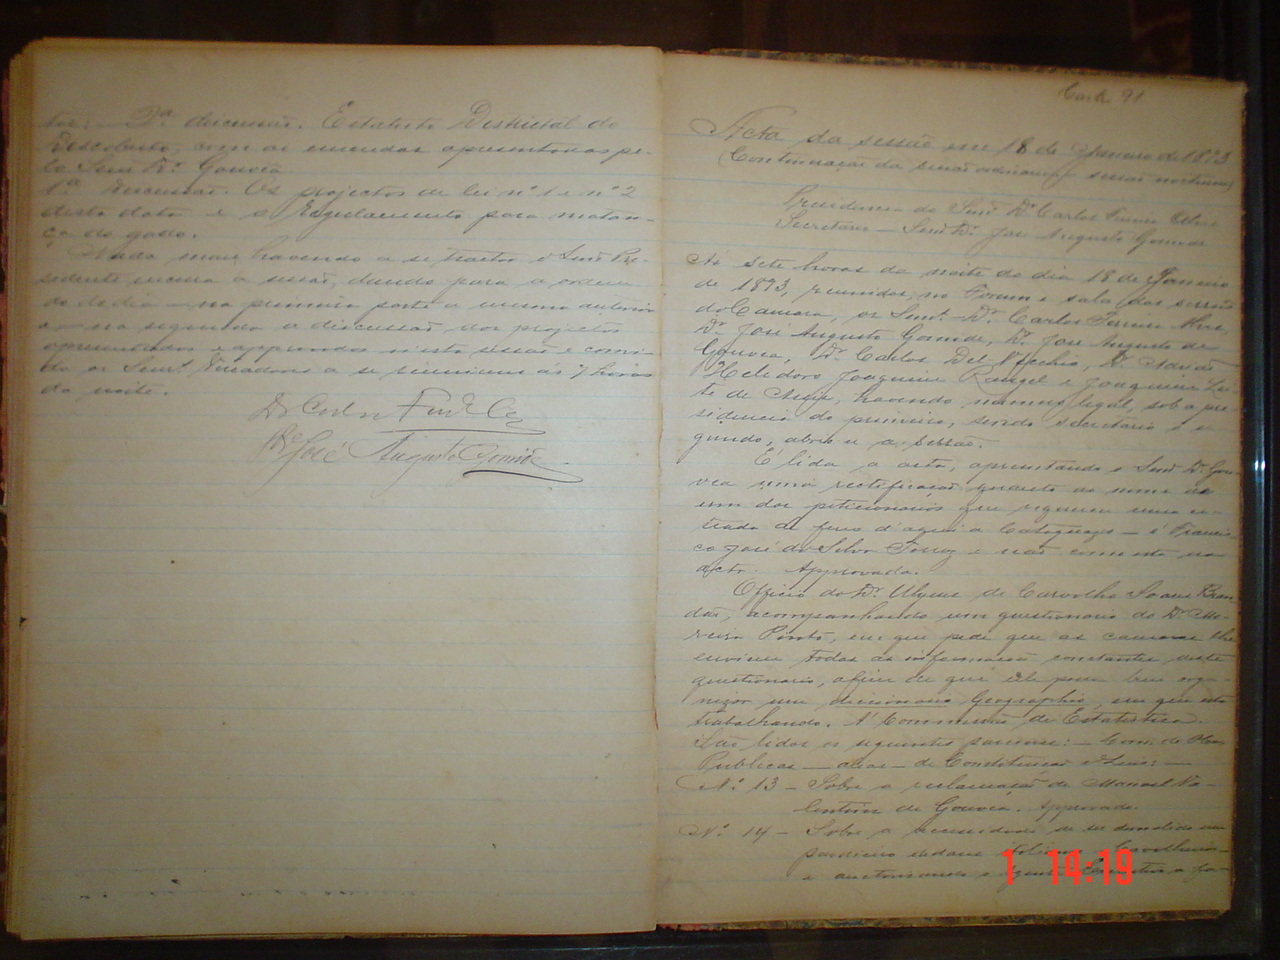 2ª discussão. Estatuto Districtal do
Descoberto, com as emendas apresentadas pe-
lo Senr. Dr. Gouvêa.
1ª discussão. Os projectos de lei nº 1 e nº 2
desta data e o Regulamento para matan-
ça do gado.
Nada mais havendo a se tractar o Senr. Pre-
sidente encerra a sessão, dando para a ordem
do dia — na primeira parte a mesma anterior
e na segunda a discussão dos projectos
apresentados e approvados nesta sessão e convi-
da os Senrs. Vereadores a se reunirem ás 7 horas
da noite.
Dr Carlos
José Augusto Gomide
91
Acta da sessão em 18 de Janeiro de 1893
(Continuação da sessão ordinaria, sessão nocturna)
Presidencia do Senr. Dr. Carlos Ferreira Alves
Secretario — Senr. Dr. José Augusto Gomide
Ás sete horas da noite do dia 18 de Janeiro
de 1893, reunidos, no Forum e sala das sessões
da Camara, os Senrs. Dr. Carlos Ferreira Alves,
Dr. José Augusto Gomide, Dr. José Augusto de
Gouvêa, Dr. Carlos Del Vecchio,
Heliodoro Joaquim Rangel e Joaquim Lei-
te de havendo numero legal, sob a pre-
sidencia do primeiro, sendo secretario o se-
gundo, abre-se a sessão.
É lida a acta, apresentando o Senr. Dr. Gou-
vêa uma rectificação quanto ao nome de
um dos peticionarios que requereu uma es-
trada de ferro d'aqui a Cataguazes — é Francis-
co José da Silva e não como está na
acta. Approvada.
Officio do Dr. Ulysses de Carvalho Soares Bran-
dão, acompanhando um questionario do Dr. Mo-
reira Pinto, em que pede que as camaras lhe
enviem todas as informações constantes deste
questionario, afim de que elle possa bem orga-
nizar um diccionario Geographico, em que está
trabalhando. Á Commissão de Estatistica.
São lidos os seguintes pareceres: — Com. de Obras
Publicas — de Constituição e Leis: —
Nº 13 — Sobre a reclamação de Manoel Va-
lentim de Gouvêa. Approvado.
Nº 14 — Sobre a necessidade de ser demolido um
pardieiro
e auctorisando o Agente Executivo a fa-
1 14:19